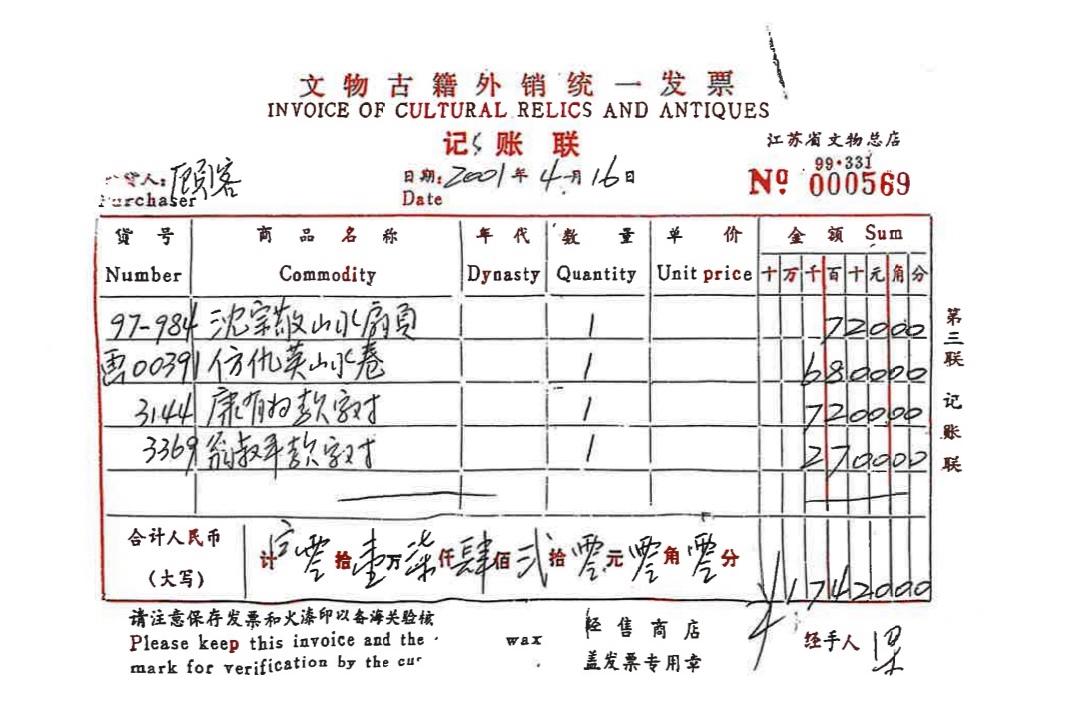 文物古籍外销统一发票
INVOICE OF CULTURAL RELICS AND ANTIQUES
记账联
江苏省文物总店
99·331
货人：顾客
Purchaser
日期：2001年4月16日
Date
Nº 000569
货号 商品名称 年代 数量 单价 金额 Sum
Number Commodity Dynasty Quantity Unit price 十万千百十元角分
97-984 沈宗敬山水扇页 1 72000
00391 仿仇英山水卷 1 680000
3144 康有为款字对 1 720000
3369 翁叔平款字对 1 270000
合计人民币
（大写）
计 零拾壹万柒仟肆佰贰拾零元零角零分
¥1742000
第三联 记账联
请注意保存发票和火漆印以备海关验核
Please keep this invoice and the wax
mark for verification by the cus
经售商店
盖发票专用章
经手人 梁